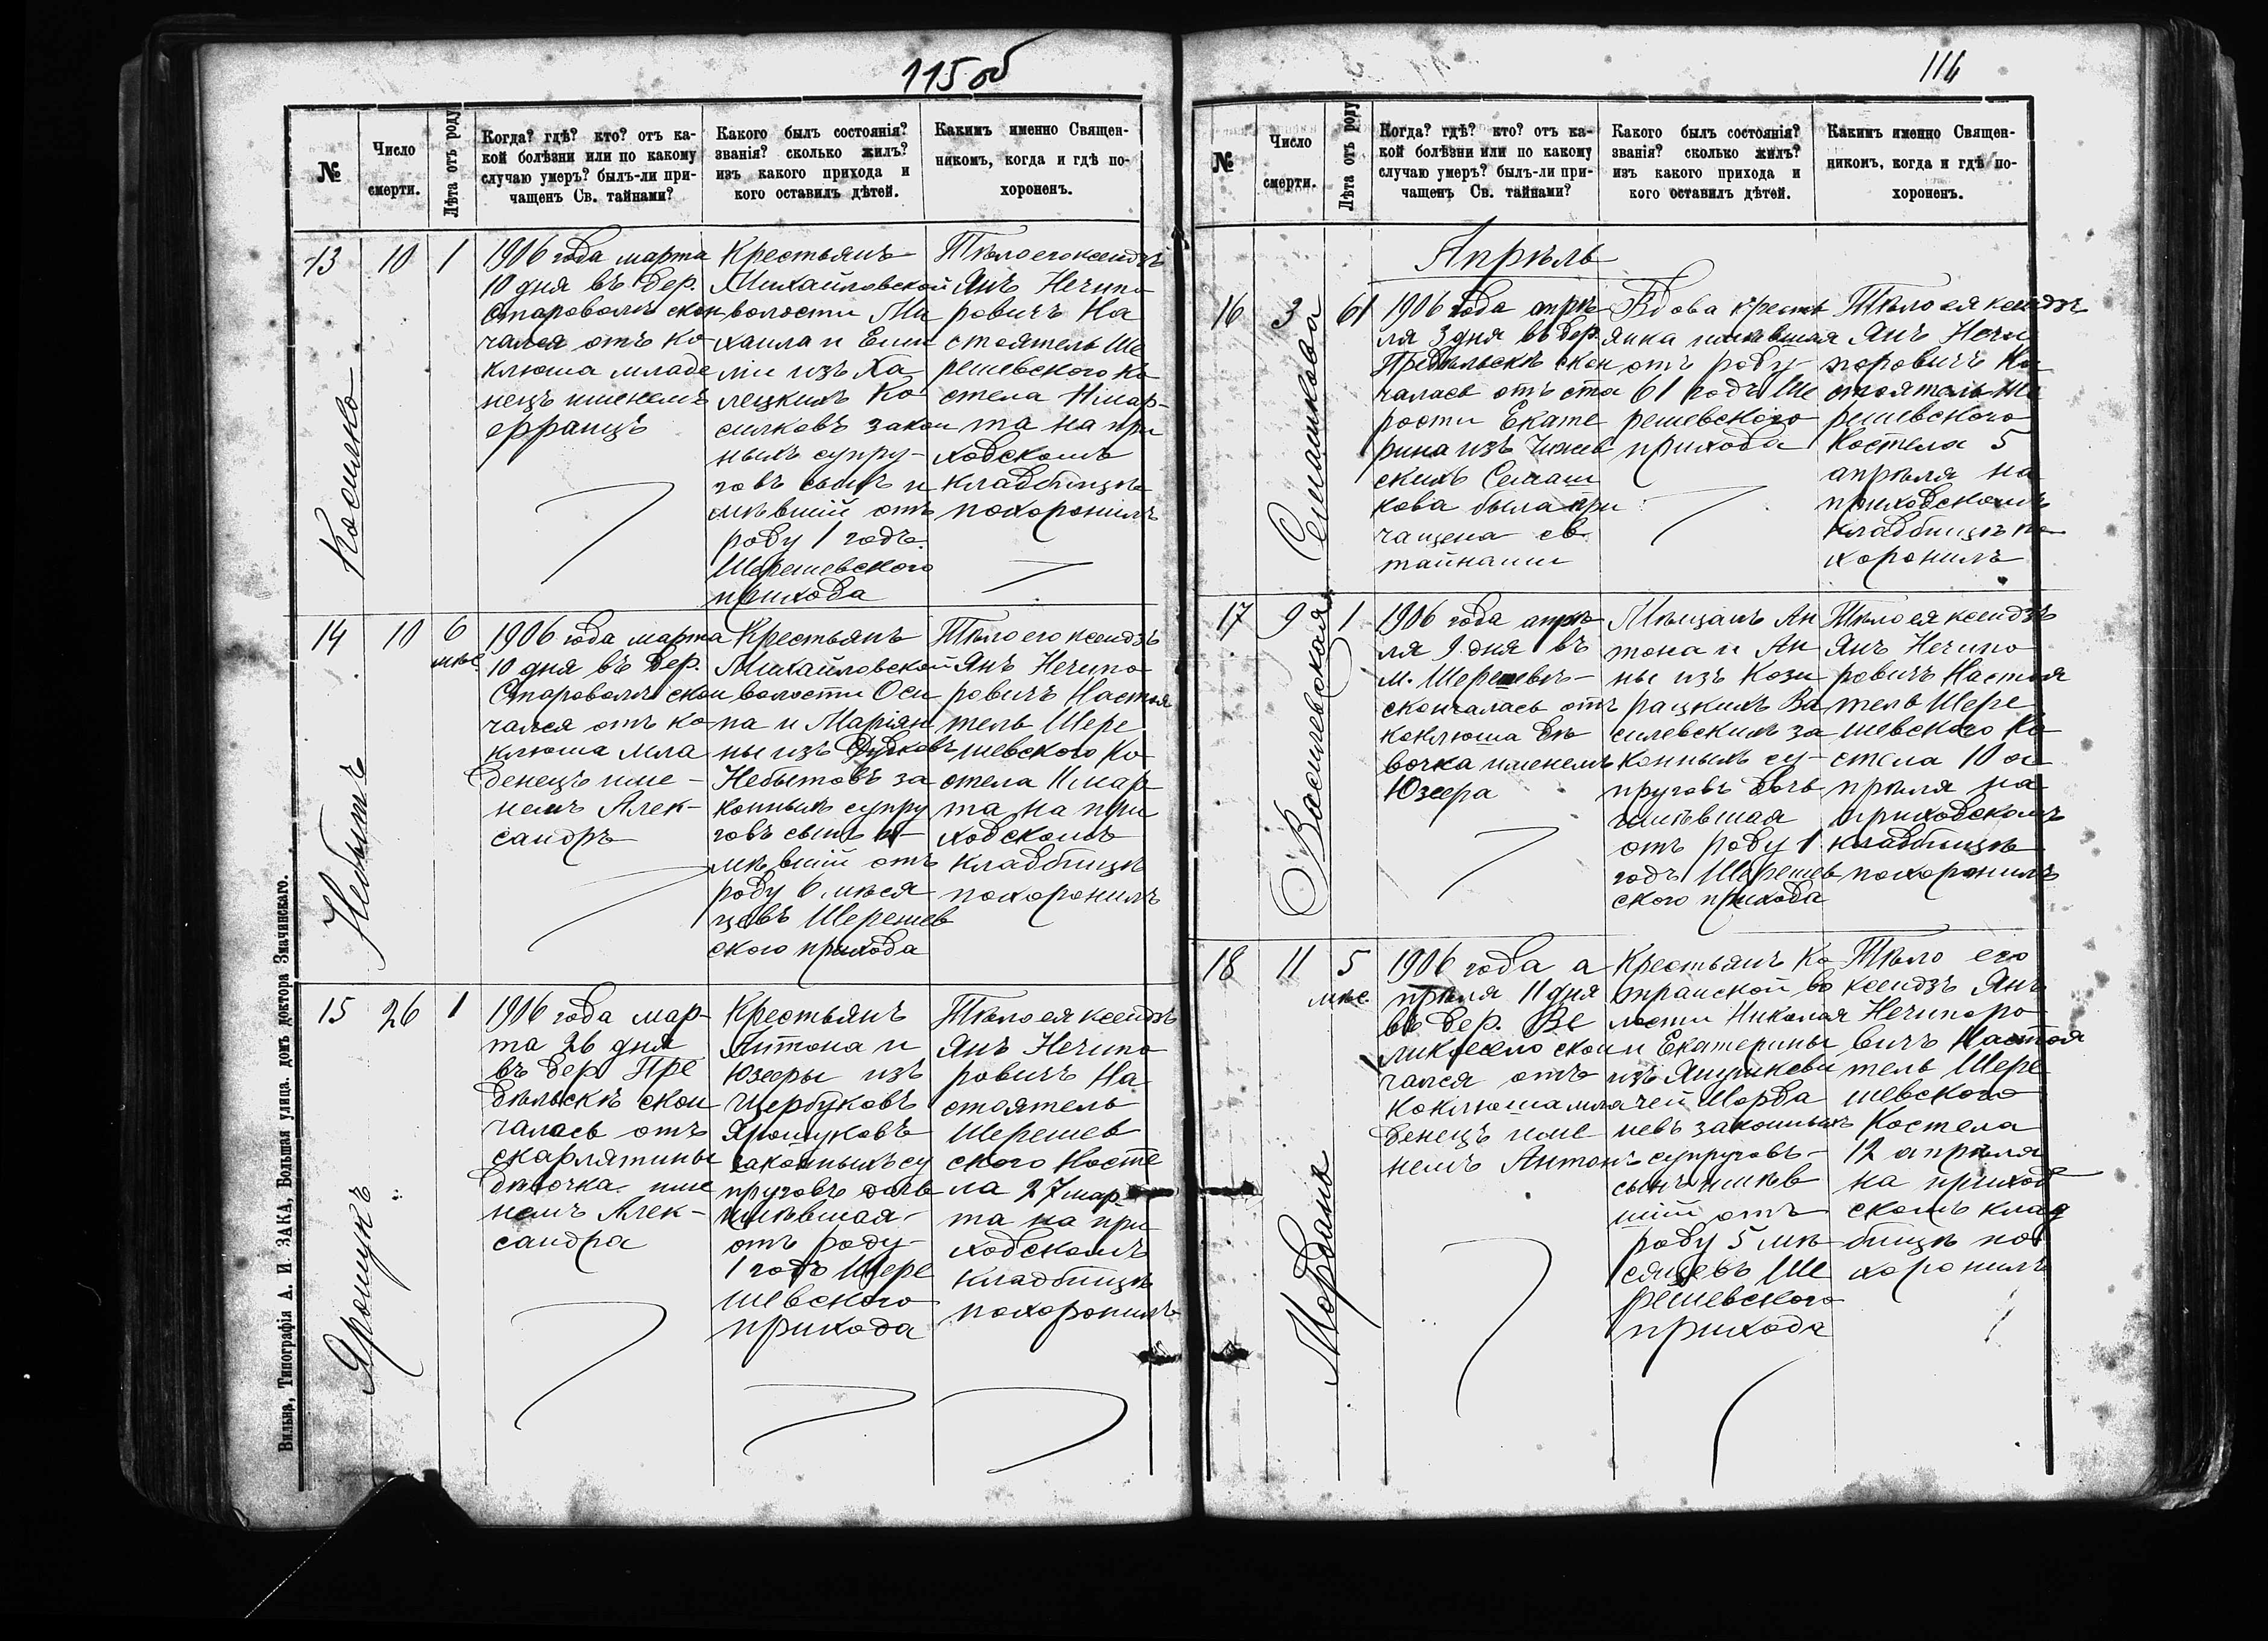 115 об
№
Число
смерти.
Лѣта отъ роду
Когда? гдѣ? кто? отъ ка-
кой болѣзни или по какому
случаю умеръ? былъ-ли при-
чащенъ Св. тайнами?
Какого былъ состоянія?
званія? сколько жилъ?
изъ какого прихода и
кого оставилъ дѣтей.
Какимъ именно Священ-
никомъ, когда и гдѣ по-
хороненъ.
13
Косилко
10
1
1906 года марта
10 дня въ дер.
Староволя скон
чался отъ ко-
клюша младе
нецъ именемъ
Францъ
Крестьянъ
Михайловской
волости Ми
хаила и Еми
ліи изъ Ха
лецкихъ Ко
силковъ закон
ныхъ супру-
говъ сынъ и
мѣвшій отъ
роду 1 годъ.
Шерешевского
прихода
Тѣло его ксендзъ
Янъ Нечипо
ровичъ На
стоятель Ше
решевского Ко
стела 11 мар-
та на при
ходскомъ
кладбищѣ
похоронилъ
14
Небытъ
10
6
мѣс
1906 года марта
10 дня въ дер.
Староволя скон
чался отъ ко-
клюша мла
денецъ име-
немъ Алек-
сандръ
Крестьянъ
Михайловской
волости Оси
па и Маріан
ны изъ Дудковъ
Небытовъ за
конныхъ супру
говъ сынъ и
мѣвшій отъ
роду 6 мѣся
цевъ Шерешев
ского прихода
Тѣло его ксендзъ
Янъ Нечипо
ровичъ Настоя
тель Шере
шевского Ко-
стела 11 мар
та на при
ходскомъ
кладбищѣ
похоронилъ
15
Ярошукъ
26
1
1906 года мар-
та 26 дня
въ дер. Пре
дѣльскѣ скон
чалась отъ
скарлятины
дѣвочка име
немъ Алек-
сандра
Крестьянъ
Антона и
Юзефы изъ
Щербуковъ
Ярошуковъ
законныхъ су
пруговъ дочь
имѣвшая
отъ роду
1 годъ Шере
шевского
прихода
Тѣло ея ксендзъ
Янъ Нечипо
ровичъ На
стоятель
Шерешев
ского Косте
ла 27 мар-
та на при
ходскомъ
кладбищѣ
похоронилъ
Вильна, Типографія А. И. ЗАКА, Большая улица. домъ доктора Значинскаго.
116
№
Число
смерти.
Лѣта отъ роду
Когда? гдѣ? кто? отъ ка-
кой болѣзни или по какому
случаю умеръ? былъ-ли при-
чащенъ Св. тайнами?
Какого былъ состоянія?
званія? сколько жилъ?
изъ какого прихода и
кого оставилъ дѣтей.
Какимъ именно Священ-
никомъ, когда и гдѣ по-
хороненъ.
Апрѣль
16
Семашкова
3
61
1906 года апрѣ
ля 3 дня въ дер.
Предѣльскѣ скон
чалась отъ ста
рости Екате
рина изъ
скихъ Семаш
кова была при
чащена св.
тайнами
Вдова кресть
янка имѣвшая
отъ роду
61 годъ Ше
решевского
прихода
Тѣло ея ксендзъ
Янъ Нечи
поровичъ На
стоятель Ше
решевского
Костела 5
апрѣля на
приходскомъ
кладбищѣ по
хоронилъ
17
Василевская
9
1
1906 года апрѣ
ля 9 дня въ
м. Шерешевѣ-
скончалась отъ
коклюша дѣ
вочка именемъ
Юзефа
Мѣщанъ Ан
тона и Ан
ны изъ Кози
рацкихъ Ва
силевскихъ за
конныхъ су-
пруговъ дочь
имѣвшая
отъ роду 1
годъ Шерешев
ского прихода
Тѣло ея ксендзъ
Янъ Нечипо
ровичъ Настоя
тель Шере
шевского Ко
стела 10 а
прѣля на
приходскомъ
кладбищѣ
похоронилъ
18
Шорданъ
11
5
мѣс.
1906 года а
прѣля 11 дня
въ дер. Ве
ликосело скон
чался отъ
коклюша мла
денецъ име
немъ Антонъ
Крестьянъ Ко
транской во
лости Николая
и Екатерины
изъ Янушкеви
чей Шорда
невъ законныхъ
супруговъ-
сынъ имѣв
шій отъ
роду 5 мѣ
сяцевъ Ше
решевского
прихода
Тѣло его
ксендзъ Янъ
Нечипоро
вичъ Настоя
тель Шере
шевского
Костела
12 апрѣля
на приход
скомъ клад
бищѣ по
хоронилъ